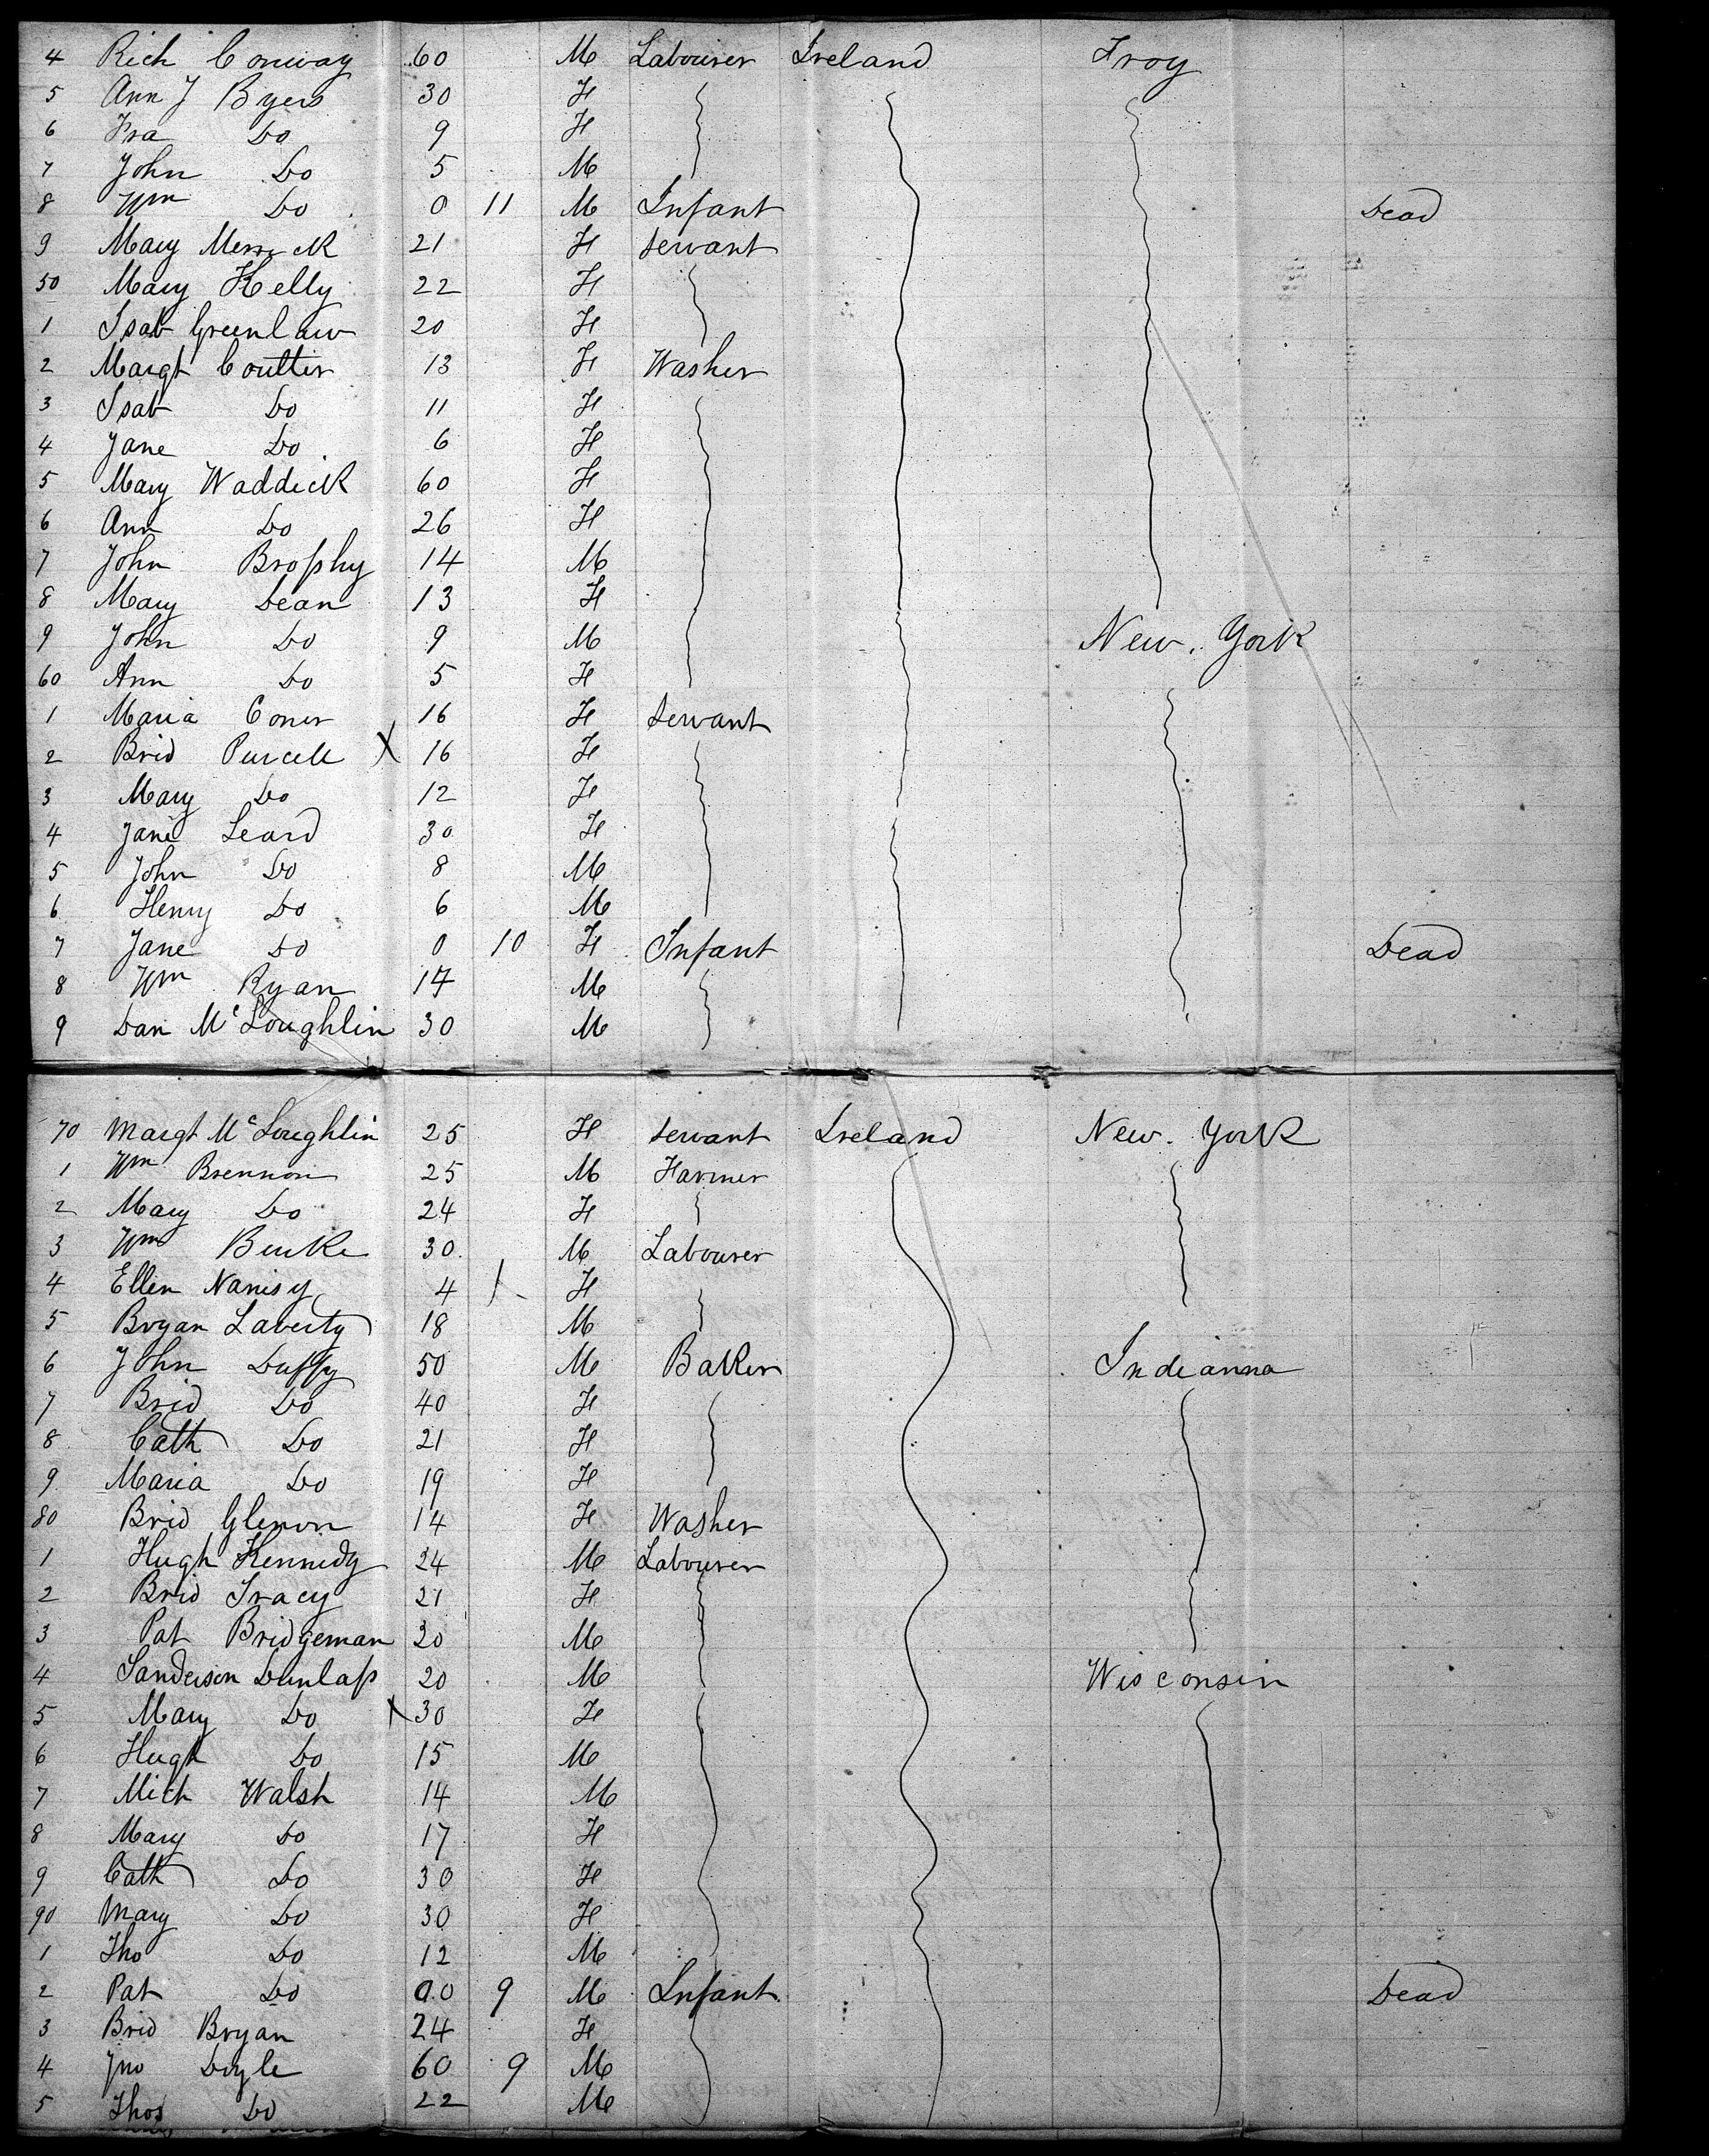 4 Rich Conway 60 M Labourer Ireland Troy
5 Ann J Byers 30 F
6 Fra Do 9 F
7 John Do 5 M
8 Wm Do 0 11 M Infant Dead
9 Mary Merrick 21 F Servant
50 Mary Kelly 22 F
1 Isab Greenlaw 20 F
2 Margt Coutter 13 F Washer
3 Isab Do 11 F
4 Jane Do 6 F
5 Mary Waddick 60 F
6 Ann Do 26 F
7 John Brophy 14 M
8 Mary Dean 13 F
9 John Do 9 M New. York
60 Ann Do 5 F
1 Maria Coner 16 F Servant
2 Brid Purcell X 16 F
3 Mary Do 12 F
4 Jane Leard 30 F
5 John Do 8 M
6 Henry Do 6 M
7 Jane Do 0 10 F Infant Dead
8 Wm Ryan 17 M
9 Dan McLoughlin 30 M
70 Margt McLoughlin 25 F Servant Ireland New. York
1 Wm Brennon 25 M Farmer
2 Mary Do 24 F
3 Wm Burke 30 M Labourer
4 Ellen 4 F
5 Bryan Laverty 18 M
6 John Duffy 50 M Baker Indianna
7 Brid Do 40 F
8 Cath Do 21 F
9 Maria Do 19 F
80 Brid Glenon 14 F Washer
1 Hugh Kennedy 24 M Labourer
2 Brid Tracy 21 F
3 Pat Bridgeman 20 M
4 Sanderson Dunlap 20 M Wisconsin
5 Mary Do X 30 F
6 Hugh Do 15 M
7 Mich Walsh 14 M
8 Mary Do 17 F
9 Cath Do 30 F
90 Mary Do 30 F
1 Tho Do 12 M
2 Pat Do 0.0 9 M Infant Dead
3 Brid Bryan 24 F
4 Jno Doyle 60 9 M
5 Thos Do 22 M